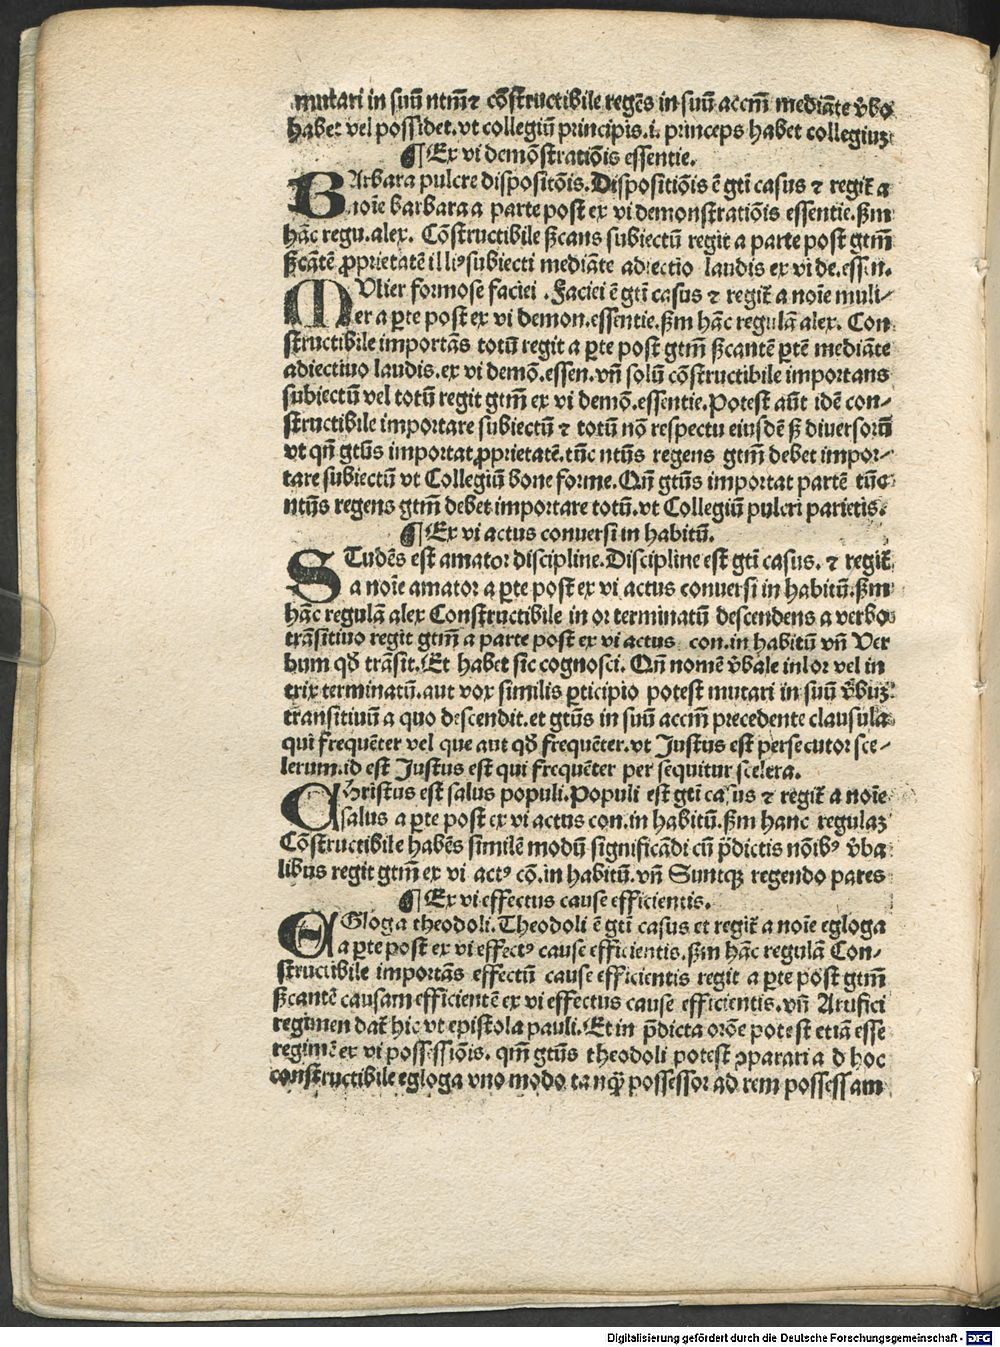 mutari in suū ntm̄ ⁊ cōstructibile regēs in suū accm̄ mediāte v̄bo
habet vel possidet.vt collegiū principis.i. princeps habet collegiuꝫ
¶ Ex vi demōstratiōis essentie.
BArbara pulcre dispositōis.Dispositiōis ē gti̅ casus ⁊ regit̄ a
noīe barbara a parte post ex vi demonstratiōis essentie.ẜm
hāc regu.alex. Cōstructibile ẜcans subiectū regit a parte post gtm̄
ẜcātē ꝓprietatē illiꝰ subiecti mediāte adiectio laudis ex vi de.essen.
MVlier formose faciei .Faciei ē gti̅ casus ⁊ regit̄ a noīe muli⸗
er a ꝑte post ex vi demon.essentie.ẜm hāc regulā alex. Con
structibile importās totū regit a ꝑte post gtm̄ ẜcantē ꝑtē mediāte
adiectiuo laudis.ex vi demō.essen.vn̄ solū cōstructibile importans
subiectū vel totū regit gtm̄ ex vi demō.essentie.Potest aūt idē con⸗
structibile importare subiectū ⁊ totū nō respectu eiusdē ẜ diuersorū
vt qn̄ gtūs importat ꝓprietatē.tūc ntūs regens gtm̄ debet impor⸗
tare subiectū vt Collegiū bone forme.Qn̄ gtūs importat partē tūc
ntūs regens gtm̄ debet importare totū.vt Collegiū pulcri parietis.
¶ Ex vi actus conuersi in habitū.
STudēs est amator discipline.Discipline est gti̅ casus. ⁊ regit̄
a noīe amator a ꝑte post ex vi actus conuersi in habitū.ẜm
hāc regulā alex Constructibile in or terminatū descendens a verbo
trāsitiuo regit gtm̄ a parte post ex vi actus con.in habitū vn̄ Ver
bum qd̄ trāsit.Et habet sic cognosci. Qn̄ nomē v̄bale in lor vel in
trix terminatū.aut vox similis ꝑticipio potest mutari in suū v̄buꝫ
transitiuū a quo descendit.et gtūs in suū accm̄ precedente clausula
qui frequēter vel que aut qd̄ frequēter.vt Justus est persecutor sce⸗
lerum.id est Justus est qui frequēter per sequitur scelera.
CHristus est salus populi.Populi est gti̅ casus ⁊ regit̄ a noīe
salus a ꝑte post ex vi actus con.in habitū.ẜm hanc regulaꝫ
Cōstructibile habēs similē modū significādi cū p̄dictis nōibꝰ v̄ba
libus regit gtm̄ ex vi actꝰ cō.in habitū.vn̄ Suntqꝫ regendo pares
¶ Ex vi effectus cause efficientis.
EGloga theodoli.Theodoli ē gti̅ casus et regit̄ a noīe egloga
a ꝑte post ex vi effectꝰ cause efficientis.ẜm hāc regulā Con⸗
structibile importās effectū cause efficientis regit a ꝑte post gtm̄
ẜcantē causam efficientē ex vi effectus cause efficientis.vn̄ Artifici
regimen dat̄ hic vt epistola pauli.Et in p̄dicta orōe potest etiā esse
regimē ex vi possessiōis. qm̄ gtūs theodoli potest ꝯparari a d hoc
constructibile egloga vno modo tanq̄ possessor ad rem possessam
Digitalisierung gefördert durch die Deutsche Forschungsgemeinschaft - DFG